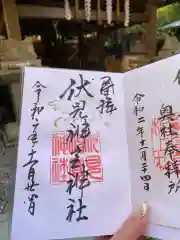 奥社奉拝所
令和二年十一月二十四日
奉拝
伏見神宝神社
令和二年十一月廿四日